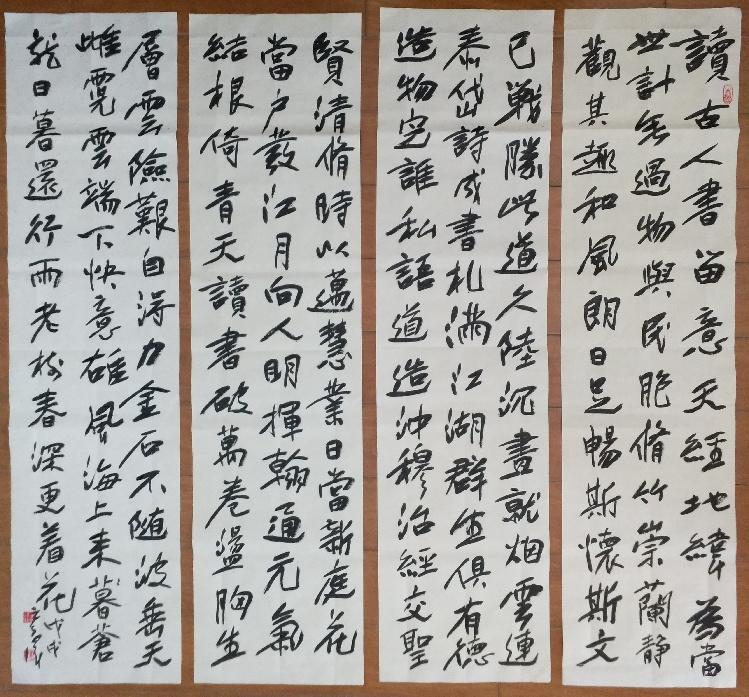 讀古人書留意天經地緯為當
世計無過物與民胞脩竹崇蘭靜
觀其趣和風朗日足暢斯懷斯文
已戰勝此道久陸沉畫就烟雲連
泰岱詩成書札滿江湖群生俱有德
造物定誰私語道造沖穆治經交聖
賢清脩時以邁慧業日當新庭花
當戶發江月向人明揮翰通元氣
結根倚青天讀書破萬卷盪胸生
層雲險艱自得力金石不隨波垂天
雌霓雲端下快意雄風海上来暮蒼
龍日暮還行雨老樹春深更着花
戊戌